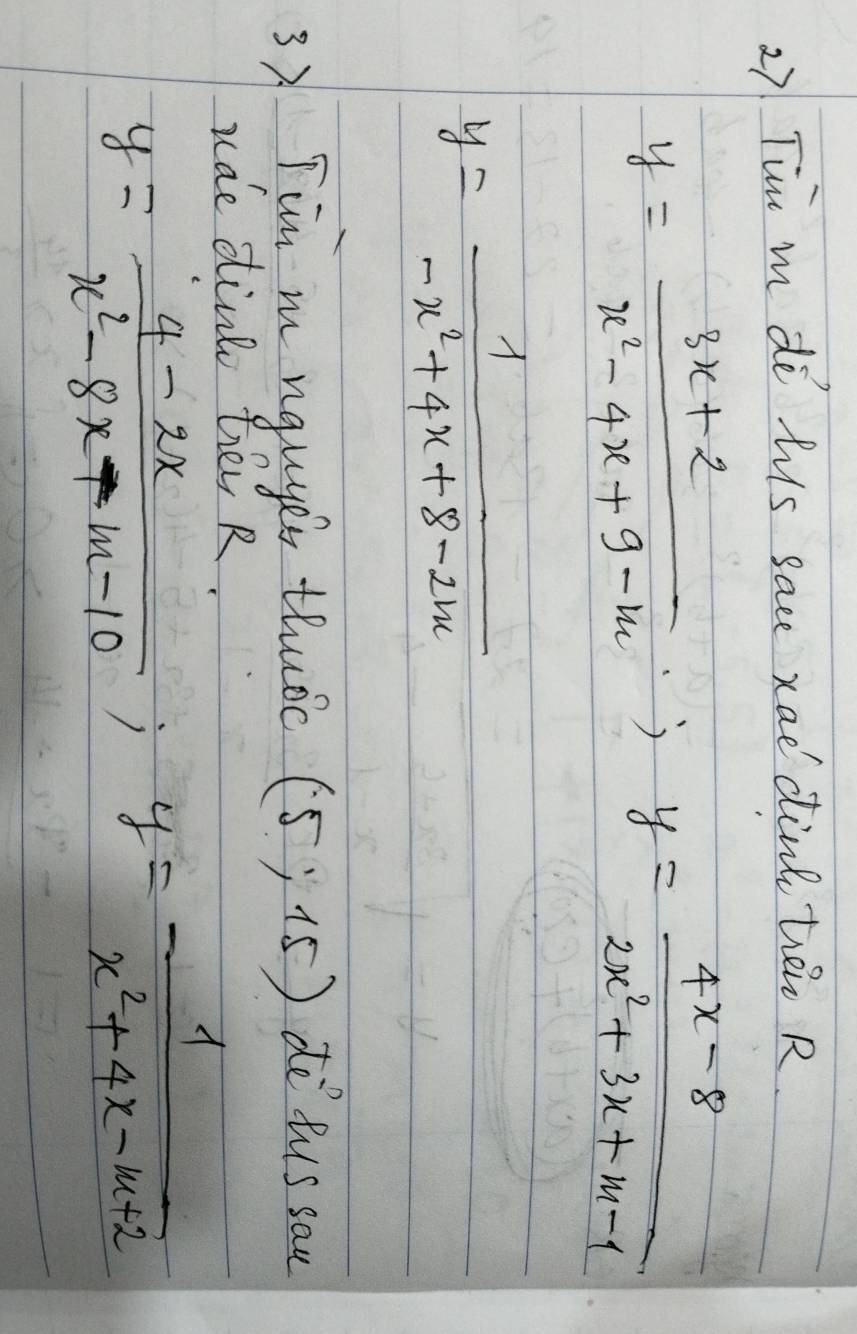 2). Tìm m để h/s sau xác định trên R.
y = (3x + 2)/(x² - 4x + 9 - m) ; y = (4x - 8)/(2x² + 3x + m - 1)
y = 1/(-x² + 4x + 8 - 2m)
3). Tìm m nguyên thuộc (5 ; 15) để h/s sau
xác định trên R.
y = (4 - 2x)/(x² - 8x + m - 10) ; y = 1/(x² + 4x - m + 2)